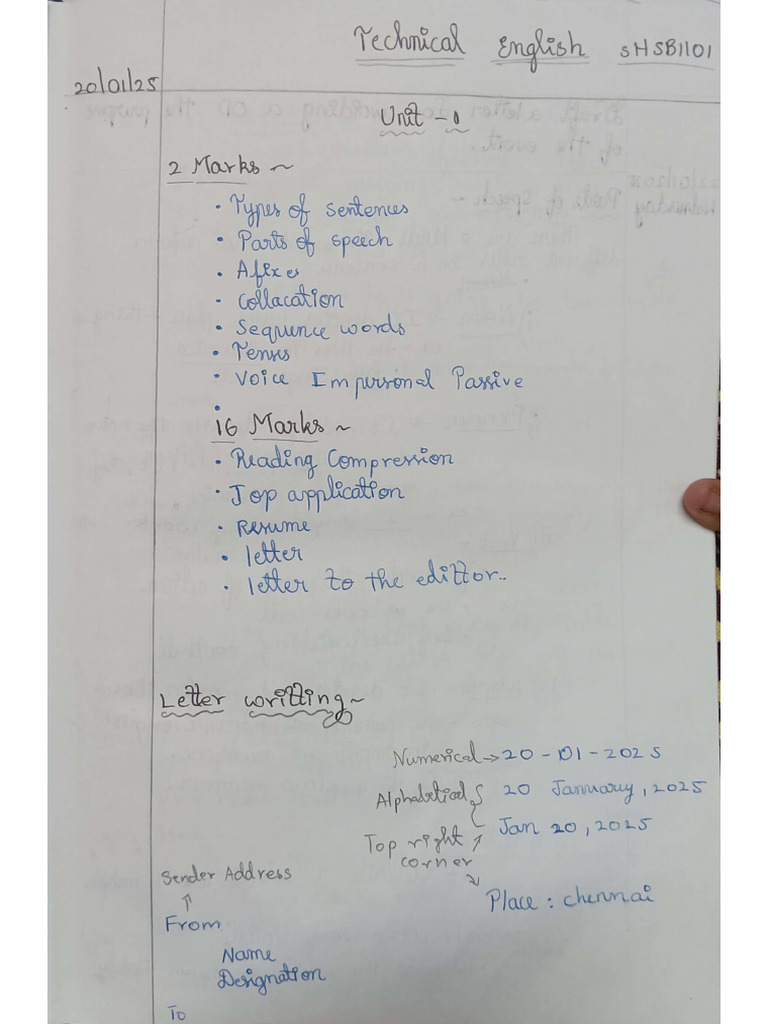 Technical English SHSB1101
20/01/25
Unit - 1
2 Marks ~
• Types of sentences
• Parts of speech
• Afixes
• Collacation
• Sequence words
• Tenses
• Voice Impersonal Passive
•
16 Marks ~
• Reading Compression
• Jop application
• Resume
• letter
• letter to the edittor..
Letter writting ~
Numerical → 20-01-2025
Alphabetical { 20 January, 2025
Jan 20, 2025
Top right
corner
Place : chennai
Sender Address
↑
From
Name
Designation
To